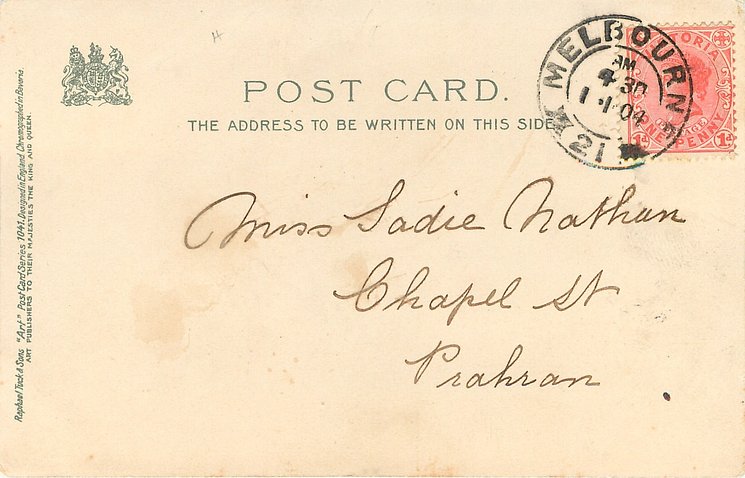 POST CARD.
THE ADDRESS TO BE WRITTEN ON THIS SIDE
MELBOURNE
AM
4 30
1 · 1 · 04
21
VICTORIA
POSTAGE
ONE PENNY
1d 1d
Miss Sadie Nathan
Chapel St
Prahran
Raphael Tuck & Sons "Art" Post Card Series 1041. Designed in England Chromographed in Bavaria.
ART PUBLISHERS TO THEIR MAJESTIES THE KING AND QUEEN.